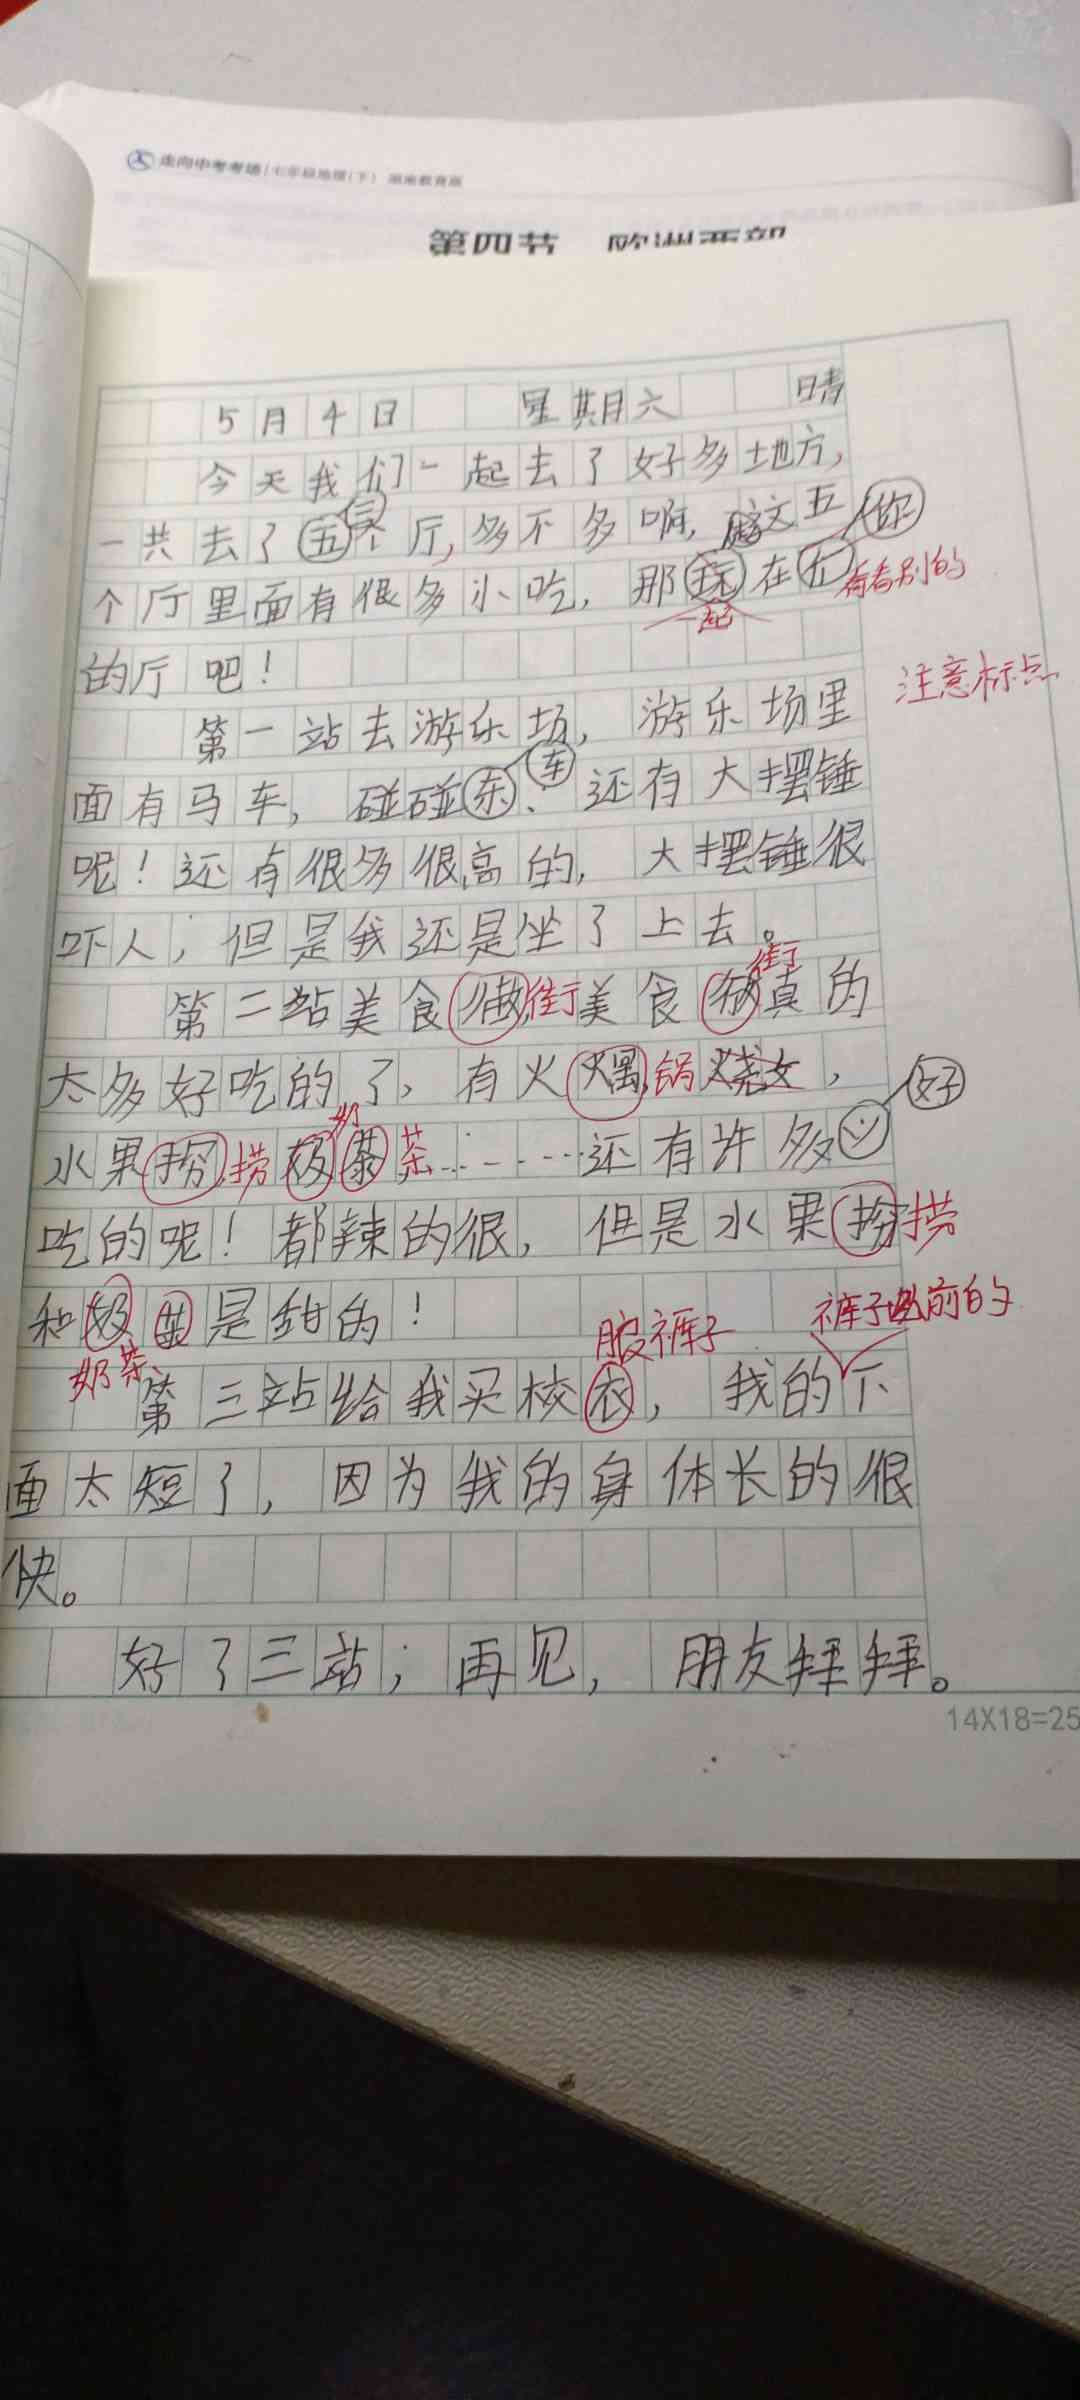 走向中考考场 | 七年级地理(下) 湖南教育版
第四节 欧洲西部
5月4日 星期六 晴
今天我们一起去了好多地方，
一共去了五个厅，多不多啊，这五
你
个厅里面有很多小吃，那玩在
看看别的
一起
的厅吧！
注意标点
第一站去游乐场，游乐场里
车
面有马车，碰碰东，还有大摆锤
呢！还有很多很高的，大摆锤很
吓人，但是我还是坐了上去。
街
第二站美食街美食真的
太多好吃的了，有火锅烧女，
好
奶
水果捞茶……还有许多
吃的呢！都辣的很，但是水果捞
和是甜的！
奶茶
服裤子
裤子以前的
第三站给我买校衣，我的下
面太短了，因为我的身体长的很
快。
好了三站；再见，朋友拜拜。
14X18=25